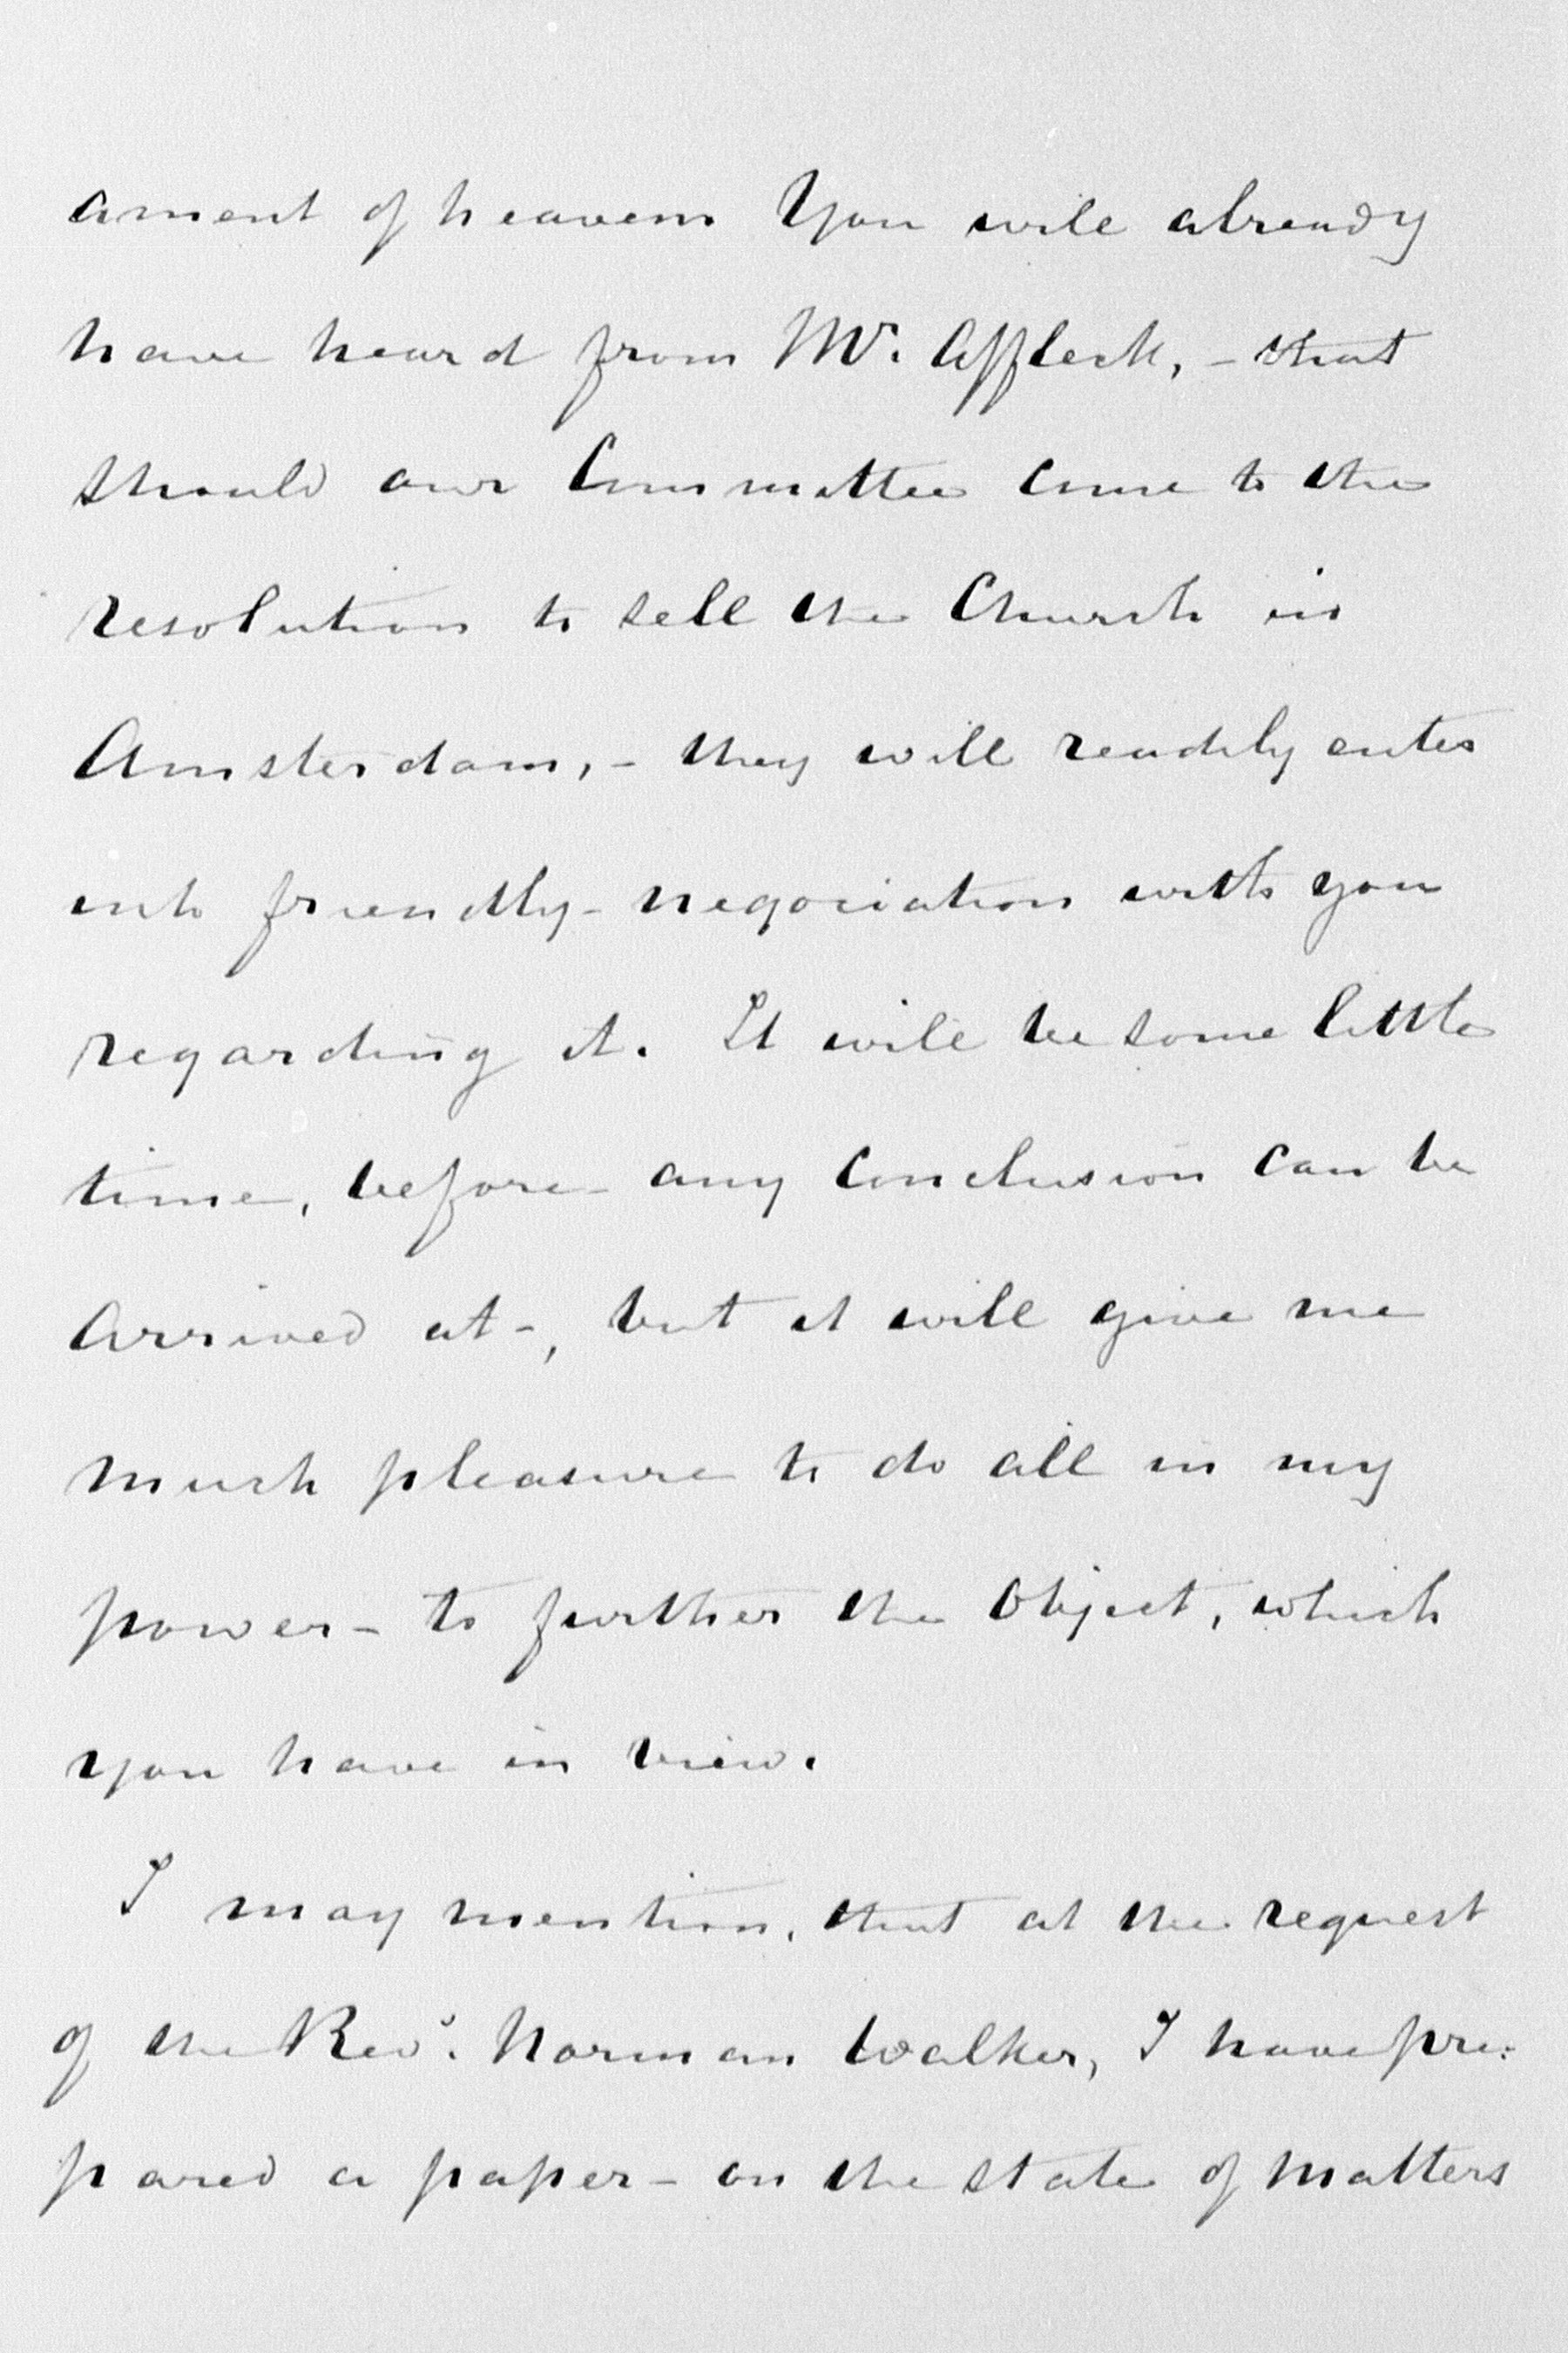 ament of heaven You will already
have heard from Mr. Affleck, - that
should our Committee come to the
resolution to sell the Church in
Amsterdam, - they will readily enter
into friendly - negociation with you
regarding it. It will be some little
time, before any conclusion can be
arrived at -, but it will give me
much pleasure to do all in my
power - to further the object, which
you have in view.
I may mention, that at the request
of the Revd. Norman Walker, I have pre:
pared a paper - on the state of matters